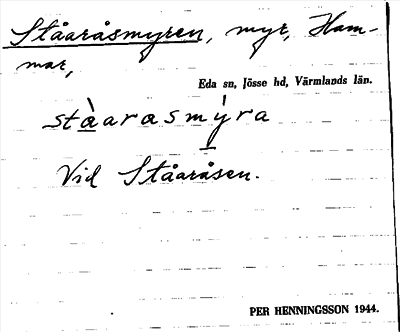 Ståaråsmyren, myr, Ham-
mar,
Eda sn, Jösse hd, Värmlands län.
stàarasmýra
Vid Ståaråsen.
PER HENNINGSSON 1944.